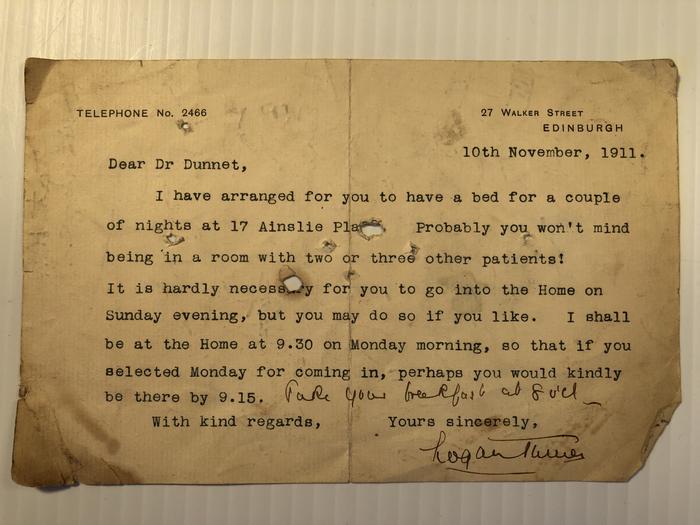 TELEPHONE No. 2466
27 WALKER STREET
EDINBURGH
10th November, 1911.
Dear Dr Dunnet,
I have arranged for you to have a bed for a couple
of nights at 17 Ainslie Pla Probably you won't mind
being in a room with two or three other patients!
It is hardly necessary for you to go into the Home on
Sunday evening, but you may do so if you like. I shall
be at the Home at 9.30 on Monday morning, so that if you
selected Monday for coming in, perhaps you would kindly
be there by 9.15. Take your breakfast at 8 o'cl
With kind regards, Yours sincerely,
Logan Turner